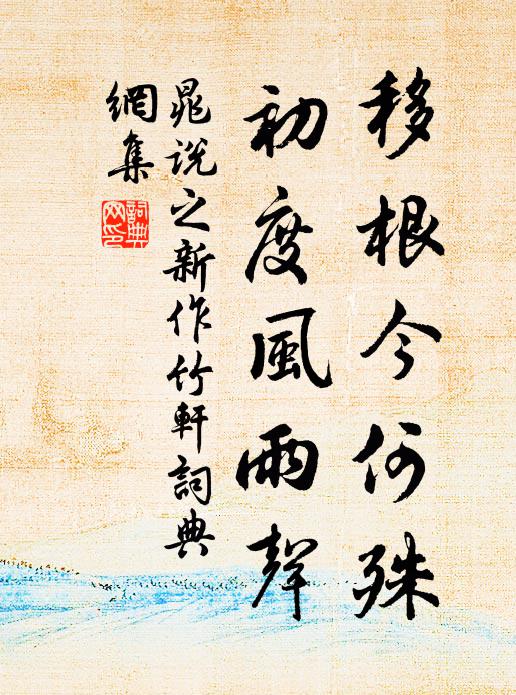 移根今何殊
初度風雨聲
晁説之新作竹軒詞典
網集
詞典
网印